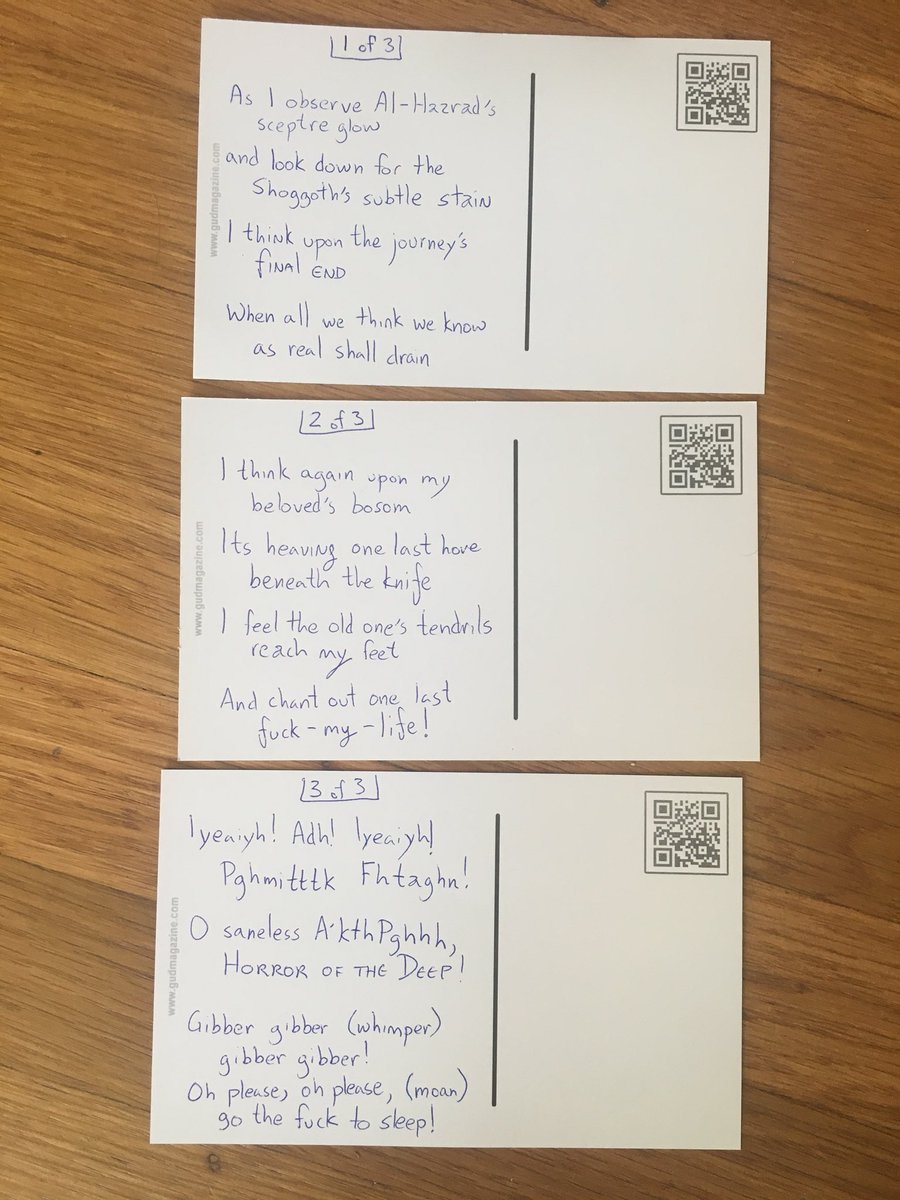 1 of 3
As I observe Al-Hazrad's
sceptre glow
and look down for the
Shoggoth's subtle stain
I think upon the journey's
final END
When all we think we know
as real shall drain
www.gudmagazine.com
2 of 3
I think again upon my
beloved's bosom
Its heaving one last hove
beneath the knife
I feel the old one's tendrils
reach my feet
And chant out one last
fuck-my-life!
www.gudmagazine.com
3 of 3
Iyeaiyh! Adh! Iyeaiyh!
Pghmitttk Fhtaghn!
O saneless A'kthPghhh,
HORROR OF THE DEEP!
Gibber gibber (whimper)
gibber gibber!
Oh please, oh please, (moan)
go the fuck to sleep!
www.gudmagazine.com